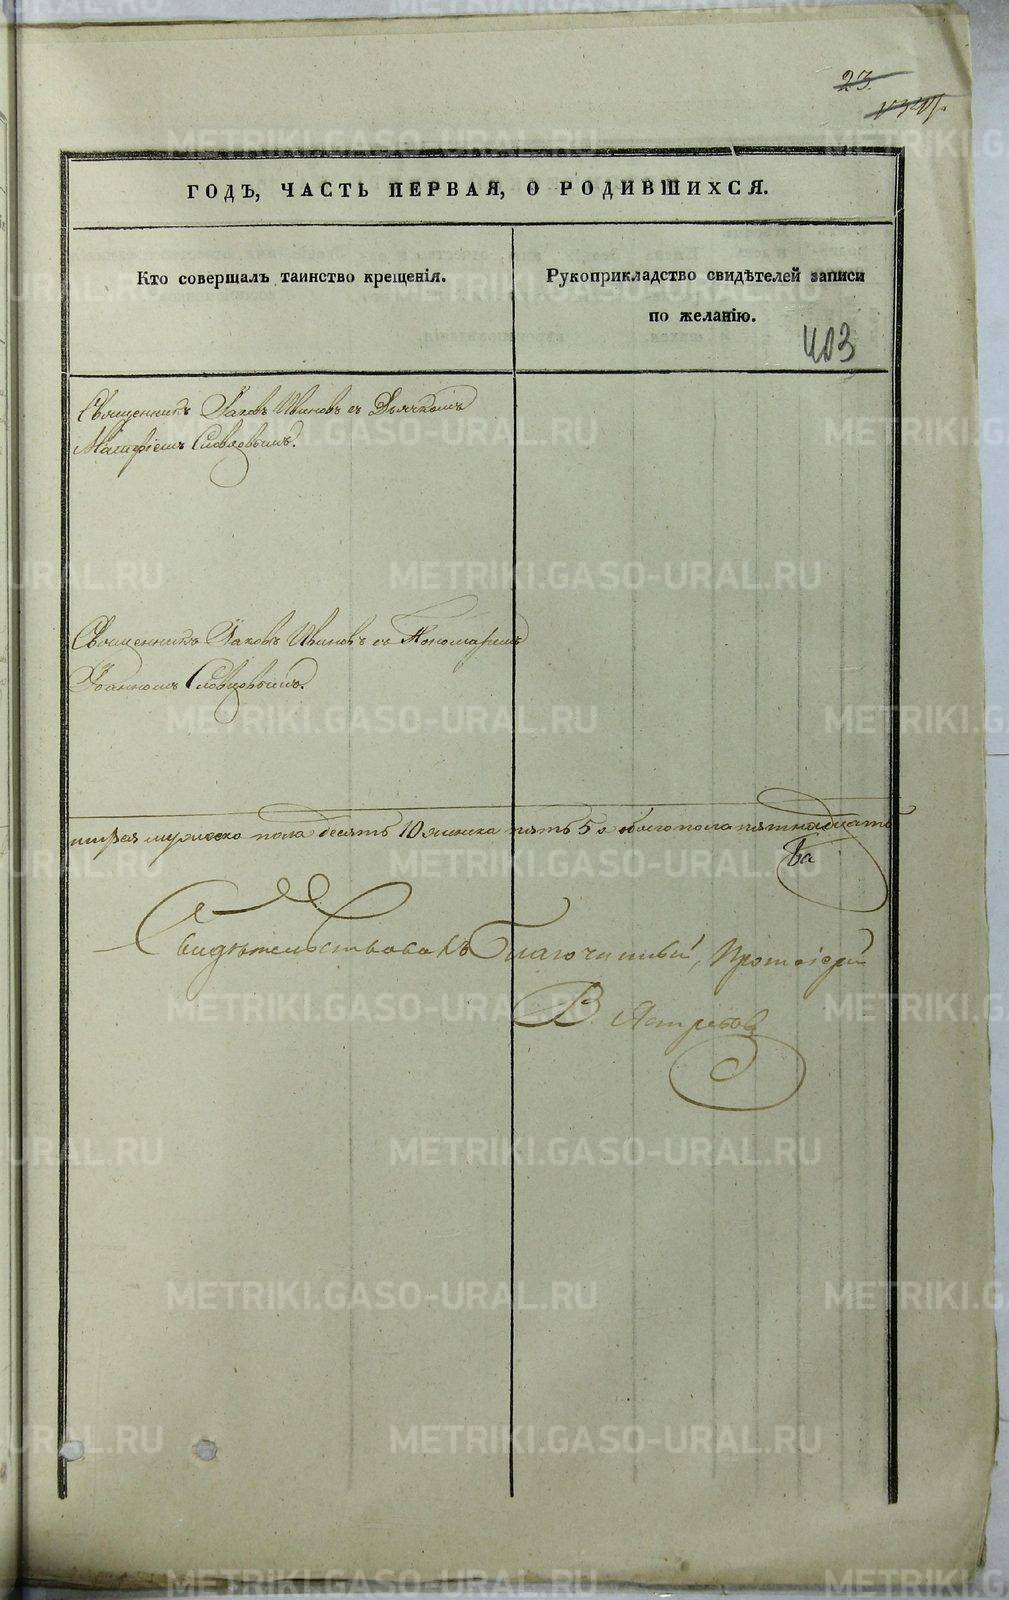 23.
ГОДЪ, ЧАСТЬ ПЕРВАЯ, О РОДИВШИХСЯ.
Кто совершалъ таинство крещенія.
Рукоприкладство свидѣтелей записи
по желанію.
403
Священникъ Іаковъ Ивановъ съ Дьячкомъ
Матфіемъ Словцовымъ.
Священникъ Іаковъ Ивановъ съ Пономаремъ
Іоанномъ Словцовымъ.
мужеска пола десять 10 женска пять 5 обоего пола пятнадцать
Свидѣтельствовалъ Благочинный, Протоіерей
В. Ястребовъ
METRIKI.GASO-URAL.RU